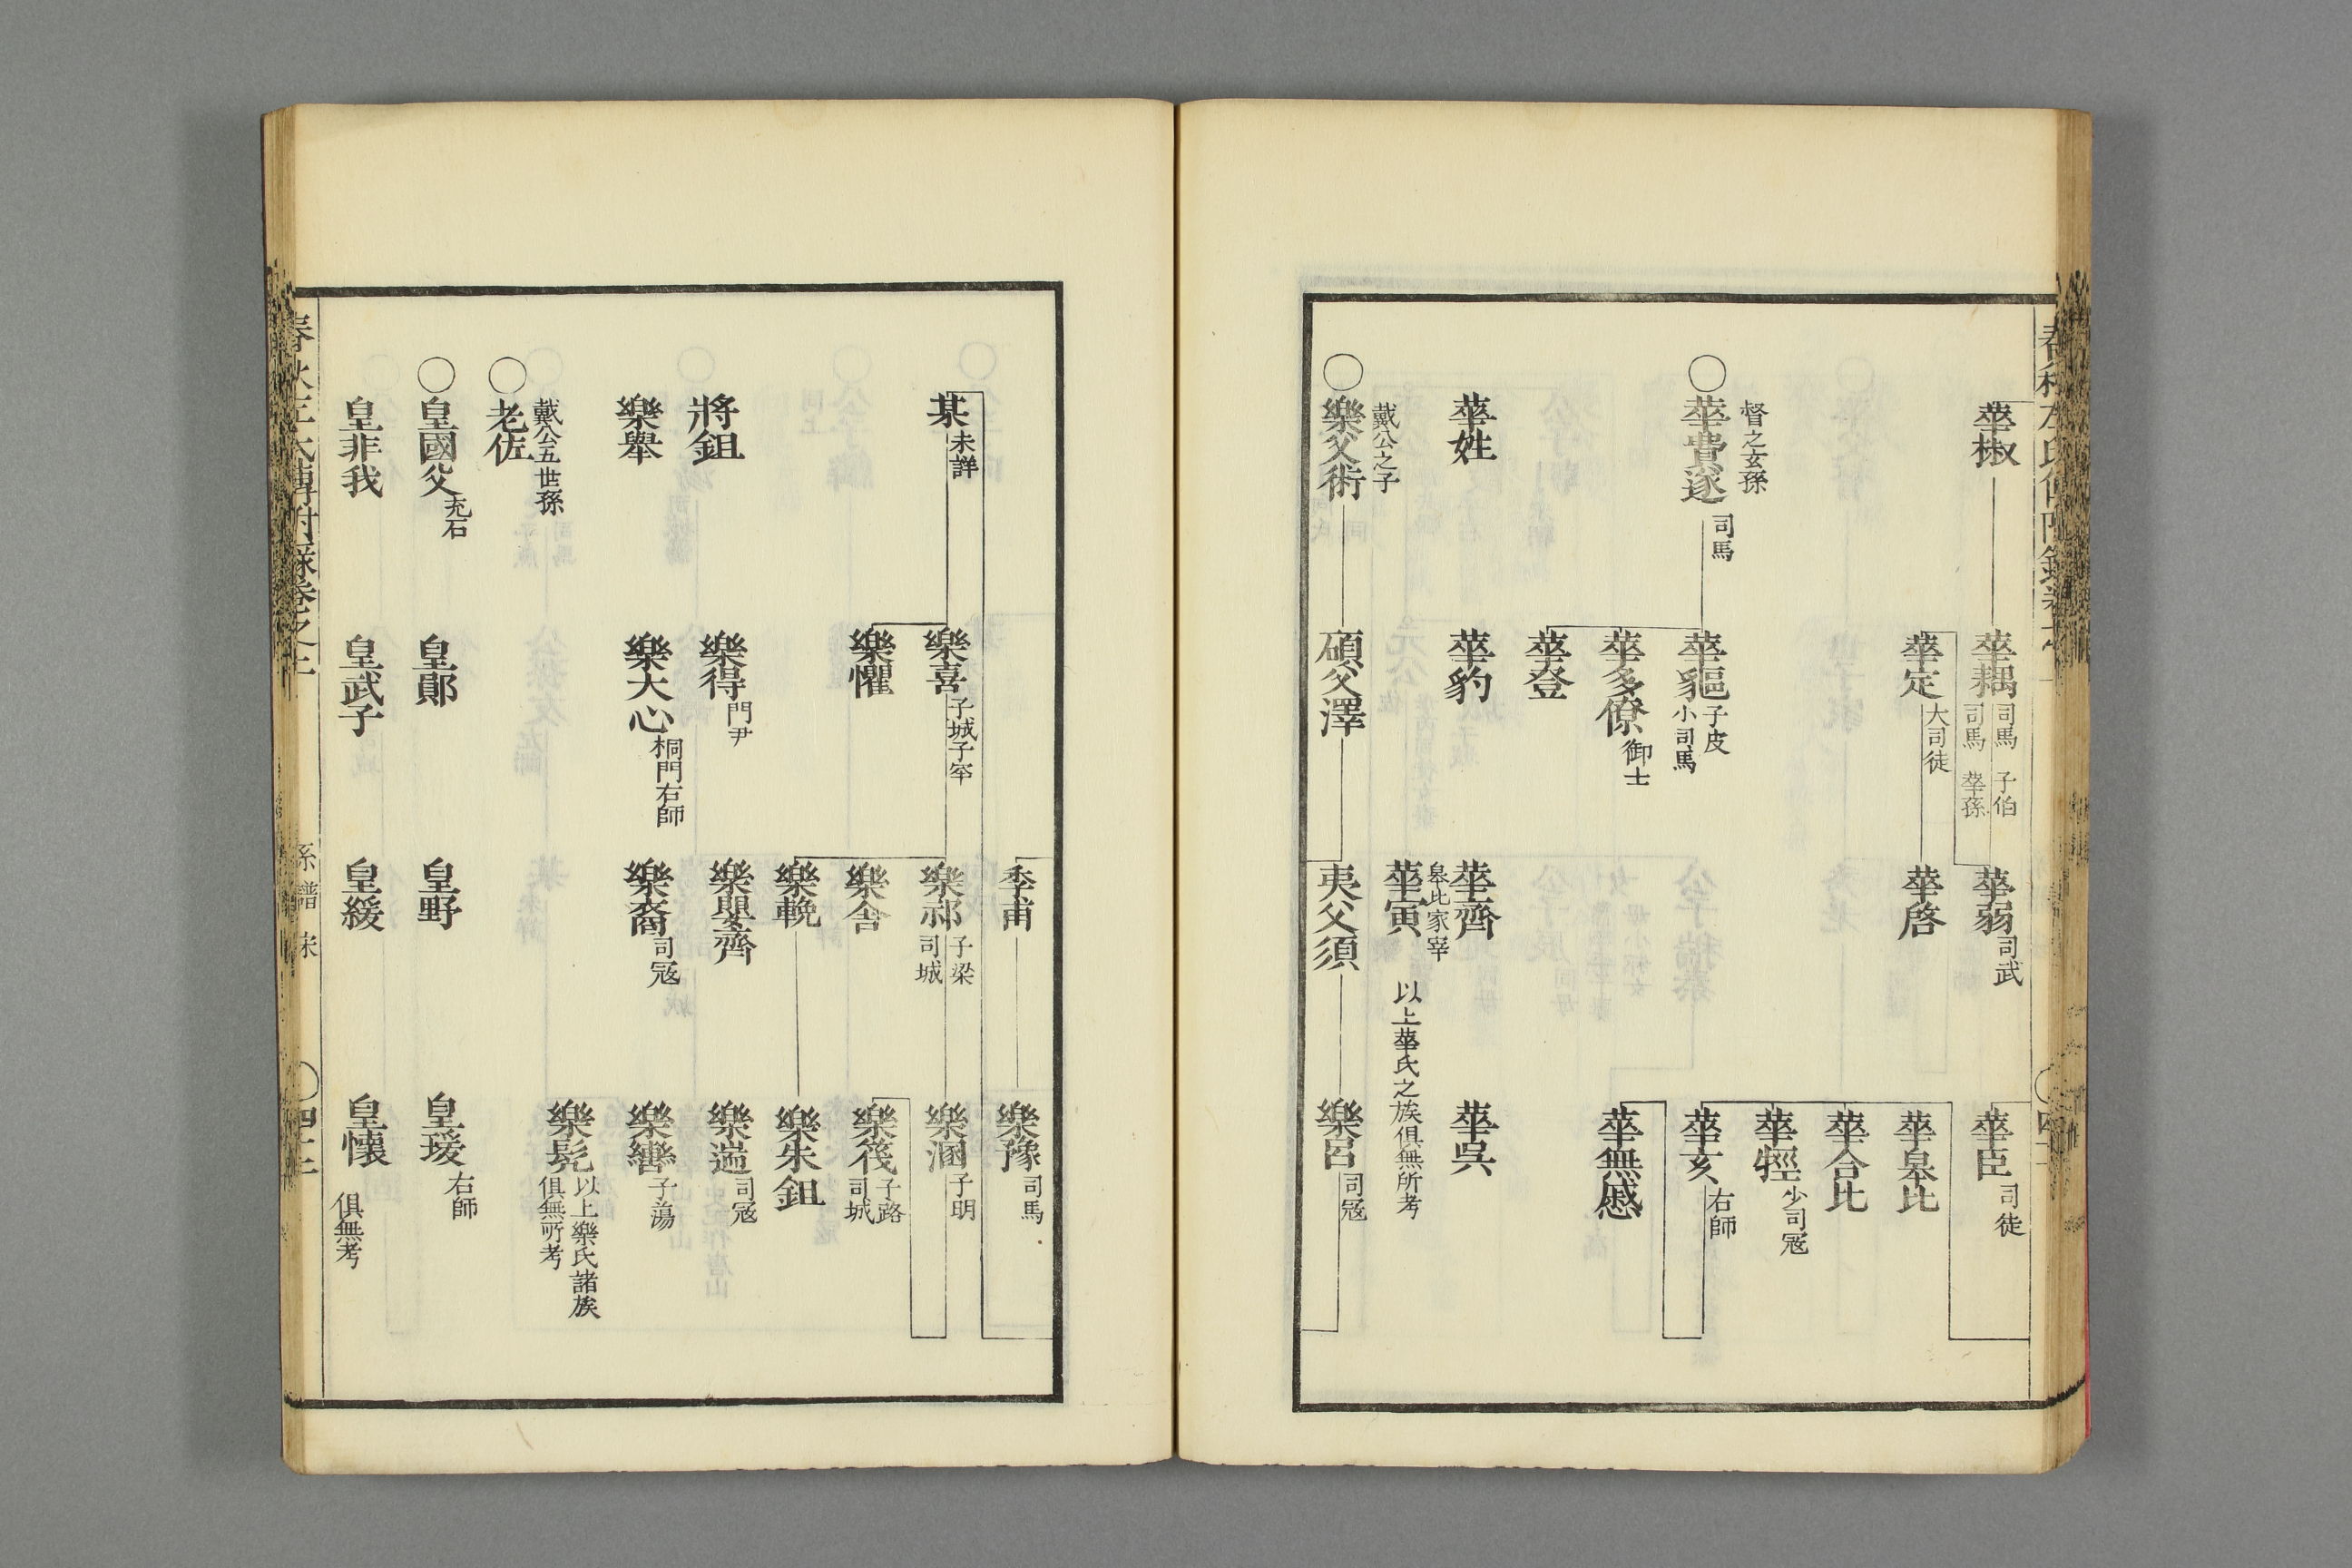 華椒
華耦 司馬 子伯
司馬 華孫
華弱 司武
華臣 司徒
華定 大司徒
華啓
華臯比
華合比
華牼 少司寇
華亥 右師
華無慼
督之玄孫
○華費遂 司馬
華貙 子皮
小司馬
華多僚 御士
華登
華姓
華豹
華齊
華吳
臯比家宰
華寅
以上華氏之族俱無所考
戴公之子
○樂父術
碩父澤
夷父須
樂呂 司寇
季甫
樂豫 司馬
某 未詳
樂喜 子城子罕
樂祁 子梁
司城
樂溷 子明
樂懼
樂舍
樂筏 子路
司城
樂輓
樂朱鉏
將鉏
樂得 門尹
樂嬰齊
樂遄 司寇
樂舉
樂大心 桐門右師
樂裔 司寇
樂轡 子蕩
樂髡 以上樂氏諸族
俱無所考
戴公五世孫
○老佐
○皇國父 充石
皇鄖
皇野
皇瑗 右師
皇非我
皇武子
皇緩
皇懷
俱無考
系譜 宋